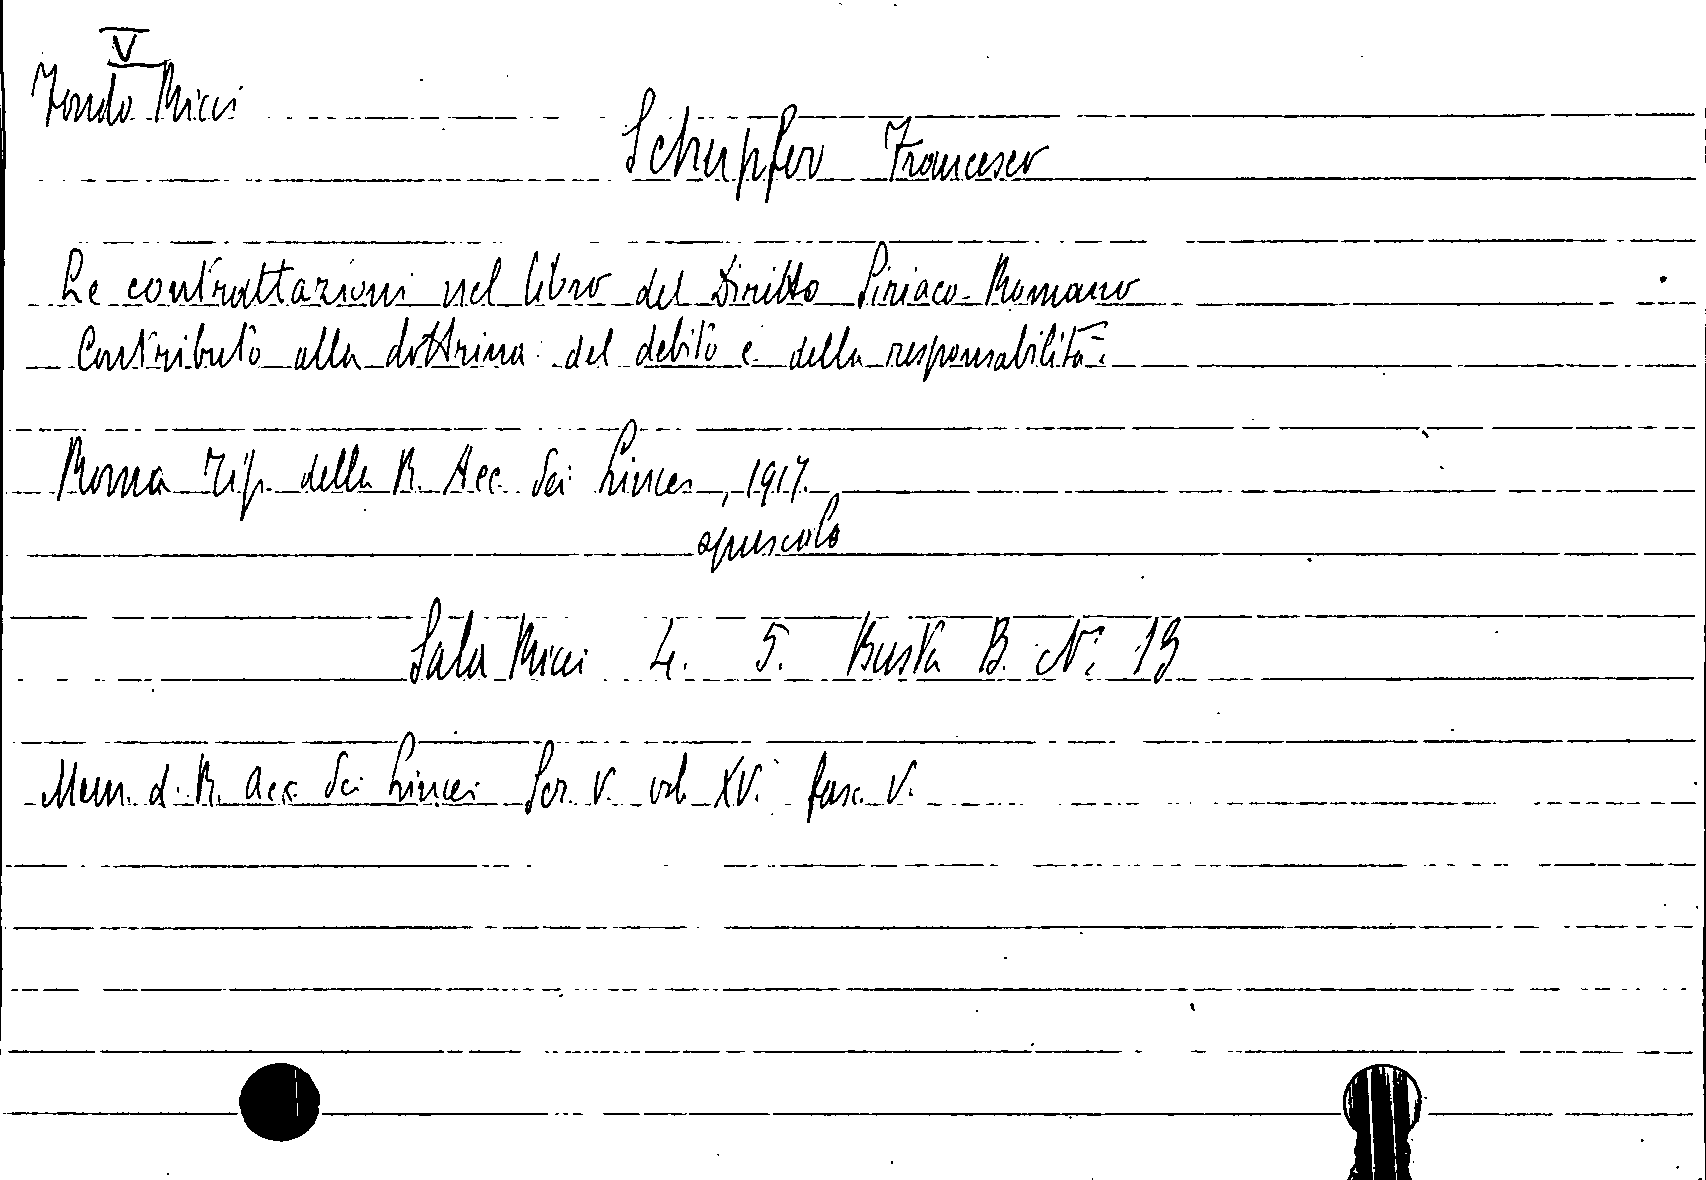 V
Fondo Ricci
Schupfer Francesco
Le contrattazioni nel libro del Diritto Siriaco-Romano
Contributo alla dottrina del debito e della responsabilità.
Roma Tip. della R. Acc. dei Lincei, 1917.
opuscolo
Sala Ricci 4. 5. Busta B. N. 13
Mem. d. R. Acc. dei Lincei Ser. V. vol. XV. fasc. V.